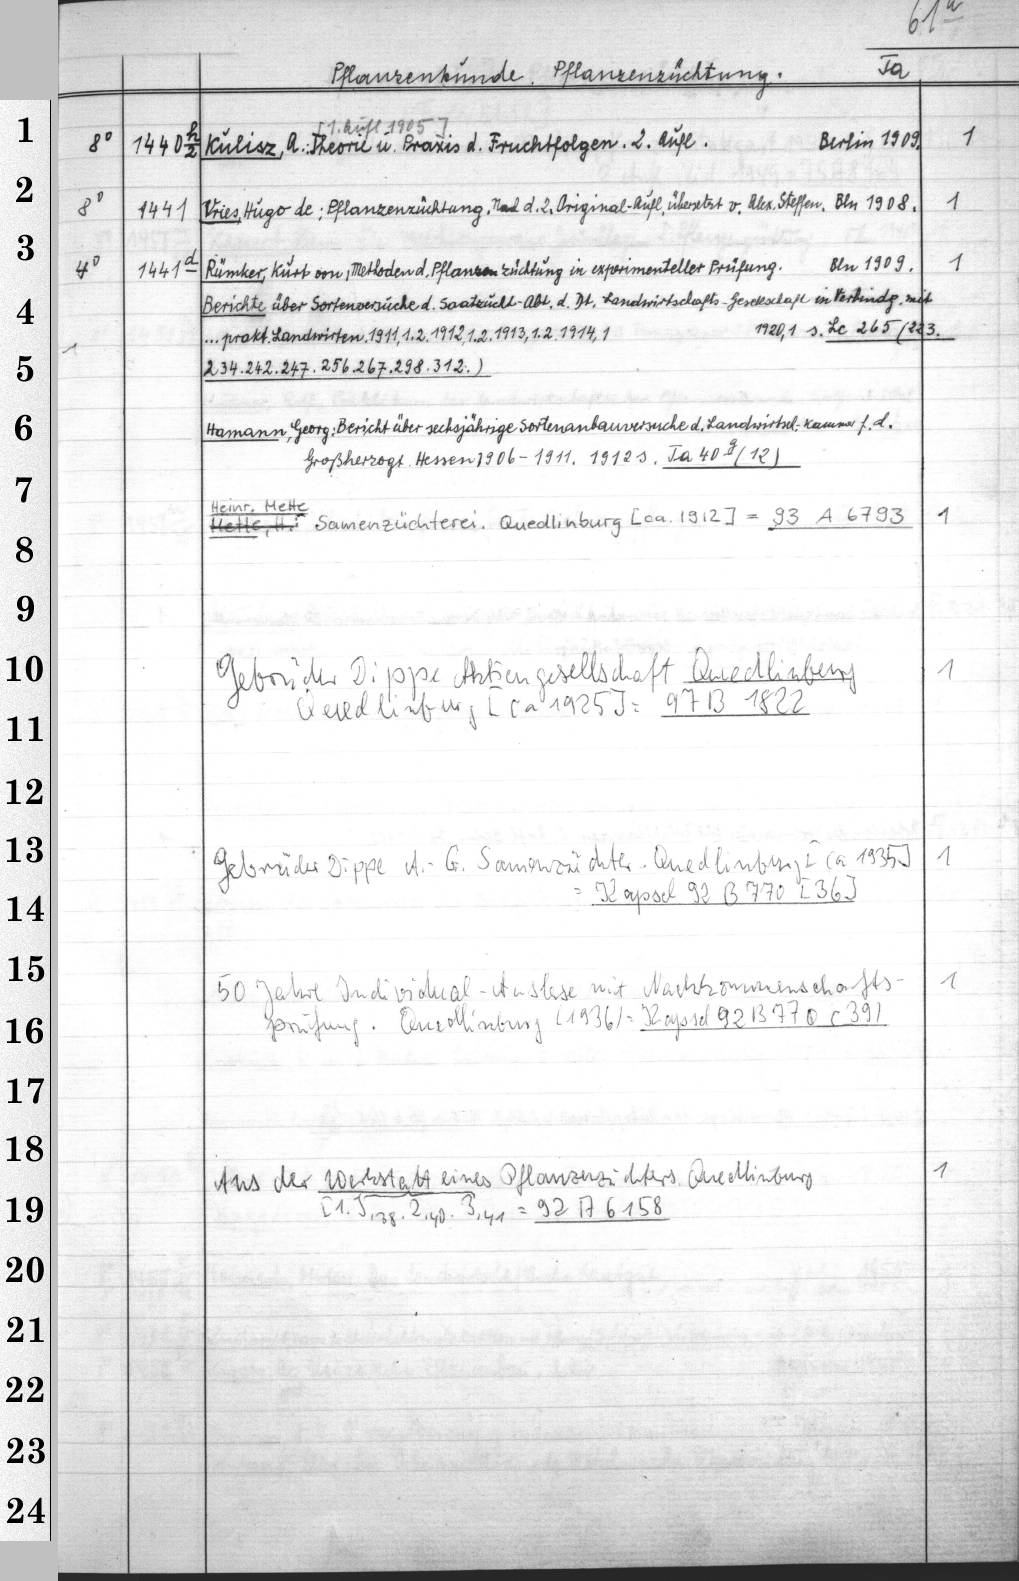 61a
Pflanzenkunde. Pflanzenzüchtung. Ta
[1. Aufl. 1905]
1 8° 1440 h/2 Kulisz, A.: Theorie u. Praxis d. Fruchtfolgen. 2. Aufl. Berlin 1909. 1
2 8° 1441 Vries, Hugo de; Pflanzenzüchtung. Nach d. 2. Original-Aufl. übersetzt v. Alex. Steffen. Bln 1908. 1
3 4° 1441 d Rümker, Kurt von, Methoden d. Pflanzenzüchtung in experimenteller Prüfung. Bln 1909. 1
4 Berichte über Sortenversuche d. Saatzucht-Abt. d. Dt. Landwirtschafts-Gesellschaft in Verbindg. mit
... prakt. Landwirten. 1911,1.2. 1912,1.2. 1913,1.2. 1914,1 1920,1 s. Lc 265 (223.
5 1 234.242.247.256.267.298.312.)
6 Hamann, Georg: Bericht über sechsjährige Sortenanbauversuche d. Landwirtsch.-Kammer f. d.
Großherzogt. Hessen 1906-1911. 1912 s. Ta 40 g (12)
7 Heinr. Mette
Mette, H.: Samenzüchterei. Quedlinburg [ca. 1912] = 93 A 6793 1
8
9
10 Gebrüder Dippe Aktiengesellschaft Quedlinburg 1
Quedlinburg [ca 1925] = 97 B 1822
11
12
13 Gebrüder Dippe A.-G. Samenzüchter. Quedlinburg [ca 1935] 1
14 = Kapsel 92 B 770 [36]
15 50 Jahre Individual-Auslese mit Nachkommenschafts- 1
16 prüfung. Quedlinburg (1936) = Kapsel 92 B 770 (39)
17
18 Aus der Werkstatt eines Pflanzenzüchters. Quedlinburg 1
19 [1.],38. 2,40. 3,41 = 92 A 6158
20
21
22
23
24